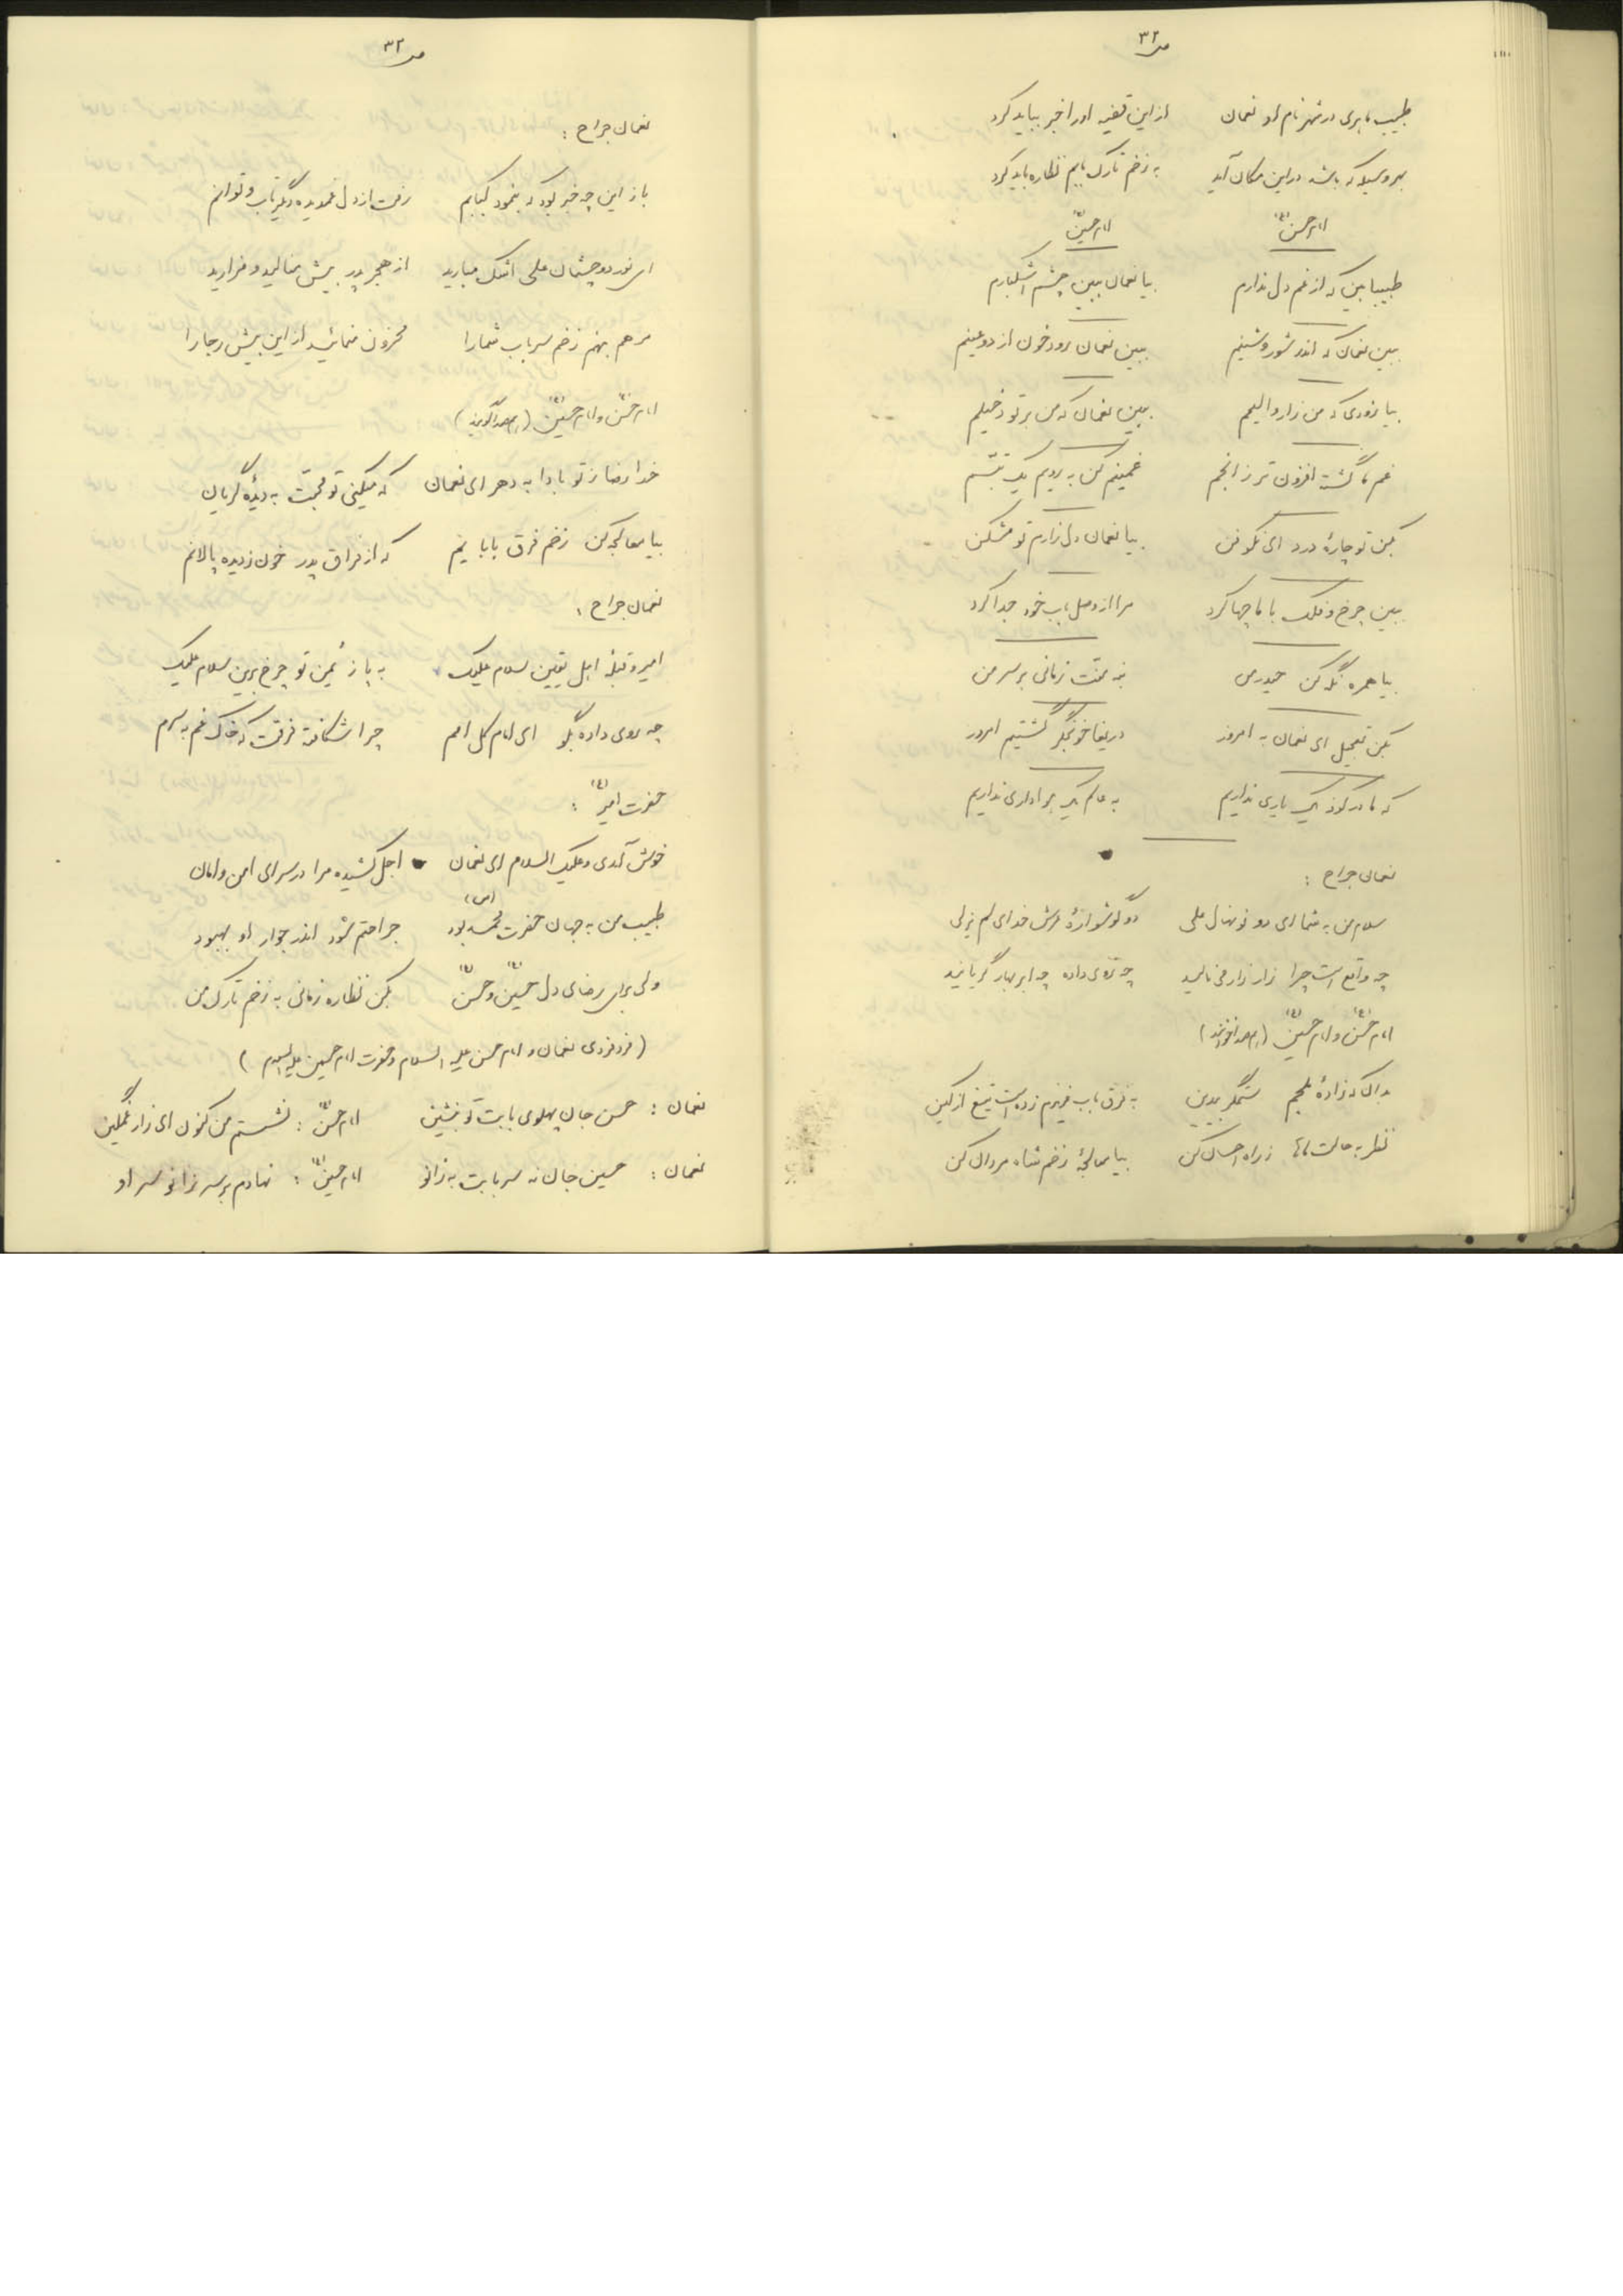 ص ۳۲
طبیب ماهری در شهر نام او نعمان از این قضیه او را خبر بباید کرد
بهر وسیله که باشد در این مکان آید به زخم تارک بابم نظاره باید کرد
امام حسن (ع) امام حسین (ع)
طبیبا بین که از غم دل ندارم بیا نعمان ببین چشم اشکبارم
ببین نعمان که اندر شور و شینم ببین نعمان رود خون از دو عینم
بیا بزودی که من زار و الیمم ببین نعمان که من بر تو دخیلم
غم ما گشته افزون تر ز انجم غمینم کن به رویم یک تبسم
بکن تو چارهٔ درد ای نکو فن بیا نعمان دل زارم تو مشکن
ببین چرخ و فلک با ما چها کرد مرا از وصل باب خود جدا کرد
بیا همره نگه کن حیدر من بنه منت زمانی بر سر من
بکن تعجیل ای نعمان به امروز دریغا خونجگر گشتیم امروز
که ما در کوفه یک یاری نداریم به عالم یک هواداری نداریم
نعمان جراح :
سلام من به شما ای دو نونهال علی دو گوشوارهٔ عرش خدای لم یزلی
چه واقع است چرا زار زار می نالید چه روی داده چه ابر بهار گریانید
امام حسن (ع) و امام حسین (ع)
بدان که زادهٔ ملجم ستمگر بدین به فرق باب عزیزم زده است تیغ از کین
نظر به حالت ماها ز راه احسان کن بیا معالجهٔ زخم شاه مردان کن
ص ۳۳
نعمان جراح :
باز این چه خبر بود که بنمود کبابم رفت از دل غمدیده دگر تاب و توانم
ای نور دو چشمان علی اشک مبارید از هجر پدر بیش منالید و مزارید
مرهم بنهم زخم سر باب شما را محزون منمائید از این بیش رجا را
امام حسن (ع) و امام حسین (ع)
خدا رضا ز تو بادا به دهر ای نعمان که میکنی تو محبت به دیدهٔ گریان
بیا معالجه کن زخم فرق بابا یم که از فراق پدر خون ز دیده پالانم
نعمان جراح :
امیر و قبلهٔ اهل یقین سلام علیک به پا ز یُمن تو چرخ برین سلام علیک
چه روی داده بگو ای امام کل امم چرا شکافته فرقت که خاک غم به سرم
حضرت امیر (ع) :
خوش آمدی و علیک السلام ای نعمان اجل کشیده مرا در سرای امن و امان
طبیب من به جهان حضرت محمد (ص) بود جراحتم شود اندر جوار او بهبود
ولی برای رضای دل حسین (ع) و حسن (ع) بکن نظاره زمانی به زخم تارک من
(فرد فردی نعمان و امام حسن علیه السلام و حضرت امام حسین علیه السلام)
نعمان : حسن جان پهلوی بابت تو بنشین امام حسن (ع) : نشستم من کنون ای زار غمگین
نعمان : حسین جان نه سر بابت به زانو امام حسین (ع) : نهادم بر سر زانو سر او